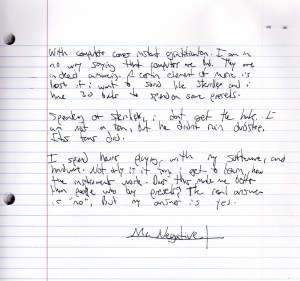 With computer comes instant gratification. I am in
no way saying that computers are bad. They are
indeed amazing. A certain element of music is
lost if i want to sound like Skrillex and i
have 30 bucks to spend on some presets.
Speaking of Skrillex, i dont get the hate. I
am not a fan, but he didnt ruin dubstep.
fans did.
I spend hours playing with my software, and
hardware. Not only is it fun, i get to learn how
the instrument works. Does this make me better
than people who buy presets? The real answer
is "no". But my answer is yes.
Mr. Negative